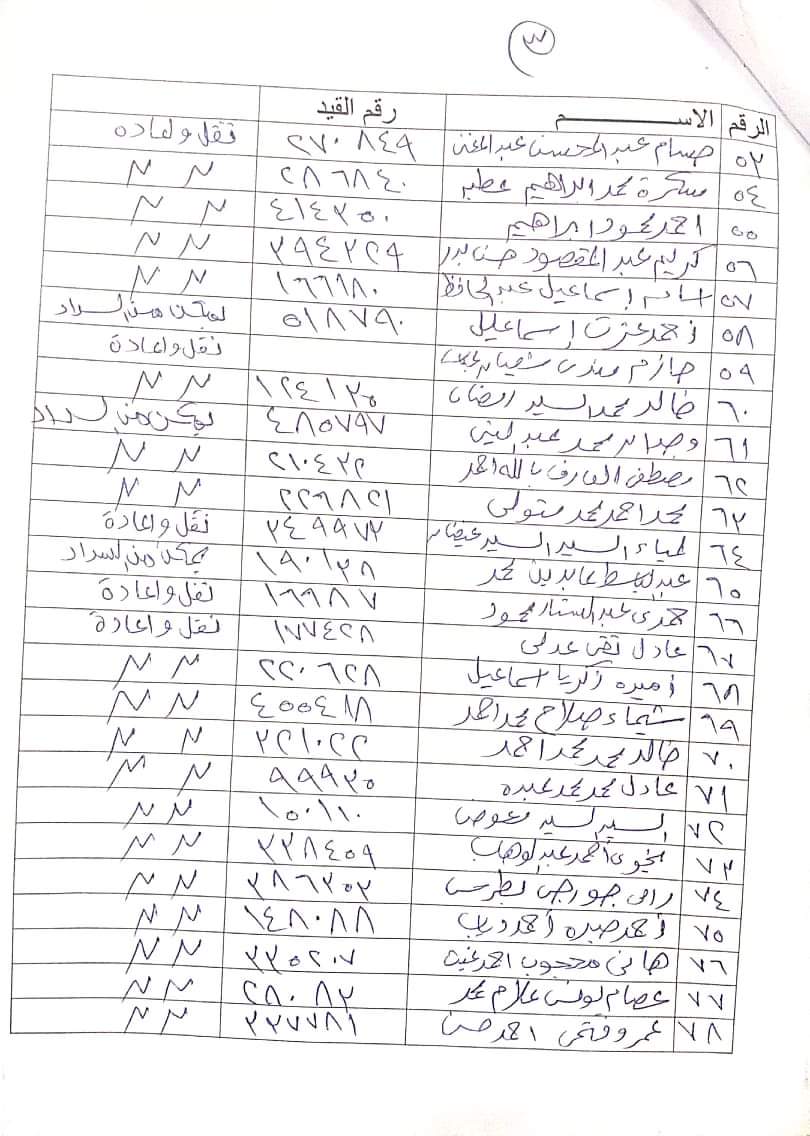 ٣
الرقم الاســـم رقم القيد
٥٢ حسام عبد المحسن عبد الغنى ٢٧٠٨٤٩ نقل واعاده
٥٤ محمد ابراهيم ٢٨٦٨٤٠ 〃 〃
٥٥ احمد محمود ابراهيم ٤١٤٢٥٠ 〃 〃
٥٦ كريم عبد المقصود حسن بدر ٢٩٤٢٢٩ 〃 〃
٥٧ اسماعيل عبد الحافظ ١٦٦٩٨٠ 〃 〃
٥٨ أحمد عزت إسماعيل ٥١٨٧٩٠ يمكن من السداد
٥٩ حازم شعبان نقل واعادة
٦٠ خالد محمد السيد رمضان ١٢٤١٢٥ 〃 〃
٦١ محمد عبد الغنى ٤٨٥٧٩٧ يمكن من السداد
٦٢ مصطفى العارف بالله احمد ٢١٠٤٢٢ 〃 〃
٦٣ محمد احمد محمد متولى ٢٢٦٨٢١ 〃 〃
٦٤ لمياء السيد السيد ٢٤٩٩٧٢ نقل واعادة
٦٥ عبد الباسط عابدين محمد ١٩٠١٢٨ يمكن من السداد
٦٦ حمدى عبد الستار محمود ١٦٩٨٧ نقل واعادة
٦٧ عادل تقى عدلى ١٧٧٤٢٨ نقل واعادة
٦٨ أميره زكريا اسماعيل ٢٢٠٦٢٨ 〃 〃
٦٩ شيماء صلاح محمد احمد ٤٠٠٤١٨ 〃 〃
٧٠ خالد محمد محمد احمد ٢٢١٠٢٢ 〃 〃
٧١ عادل محمد محمد عبده ٩٩٩٢٥ 〃 〃
٧٢ السيد السيد معوض ١٠٠١١٠ 〃 〃
٧٣ نجوى أحمد عبد الوهاب ٢٢٨٤٥٩ 〃 〃
٧٤ رامى جورجى بطرس ٢٨٦٢٥٢ 〃 〃
٧٥ أحمد صبره أحمد دياب ١٤٨٠٨٨ 〃 〃
٧٦ هانى محجوب احمد ٢٢٥٢٠٧ 〃 〃
٧٧ عصام يونس علام محمد ٢٨٠٨٢ 〃 〃
٧٨ عمرو فتحى احمد حسن ٢٢٧٧٨١ 〃 〃